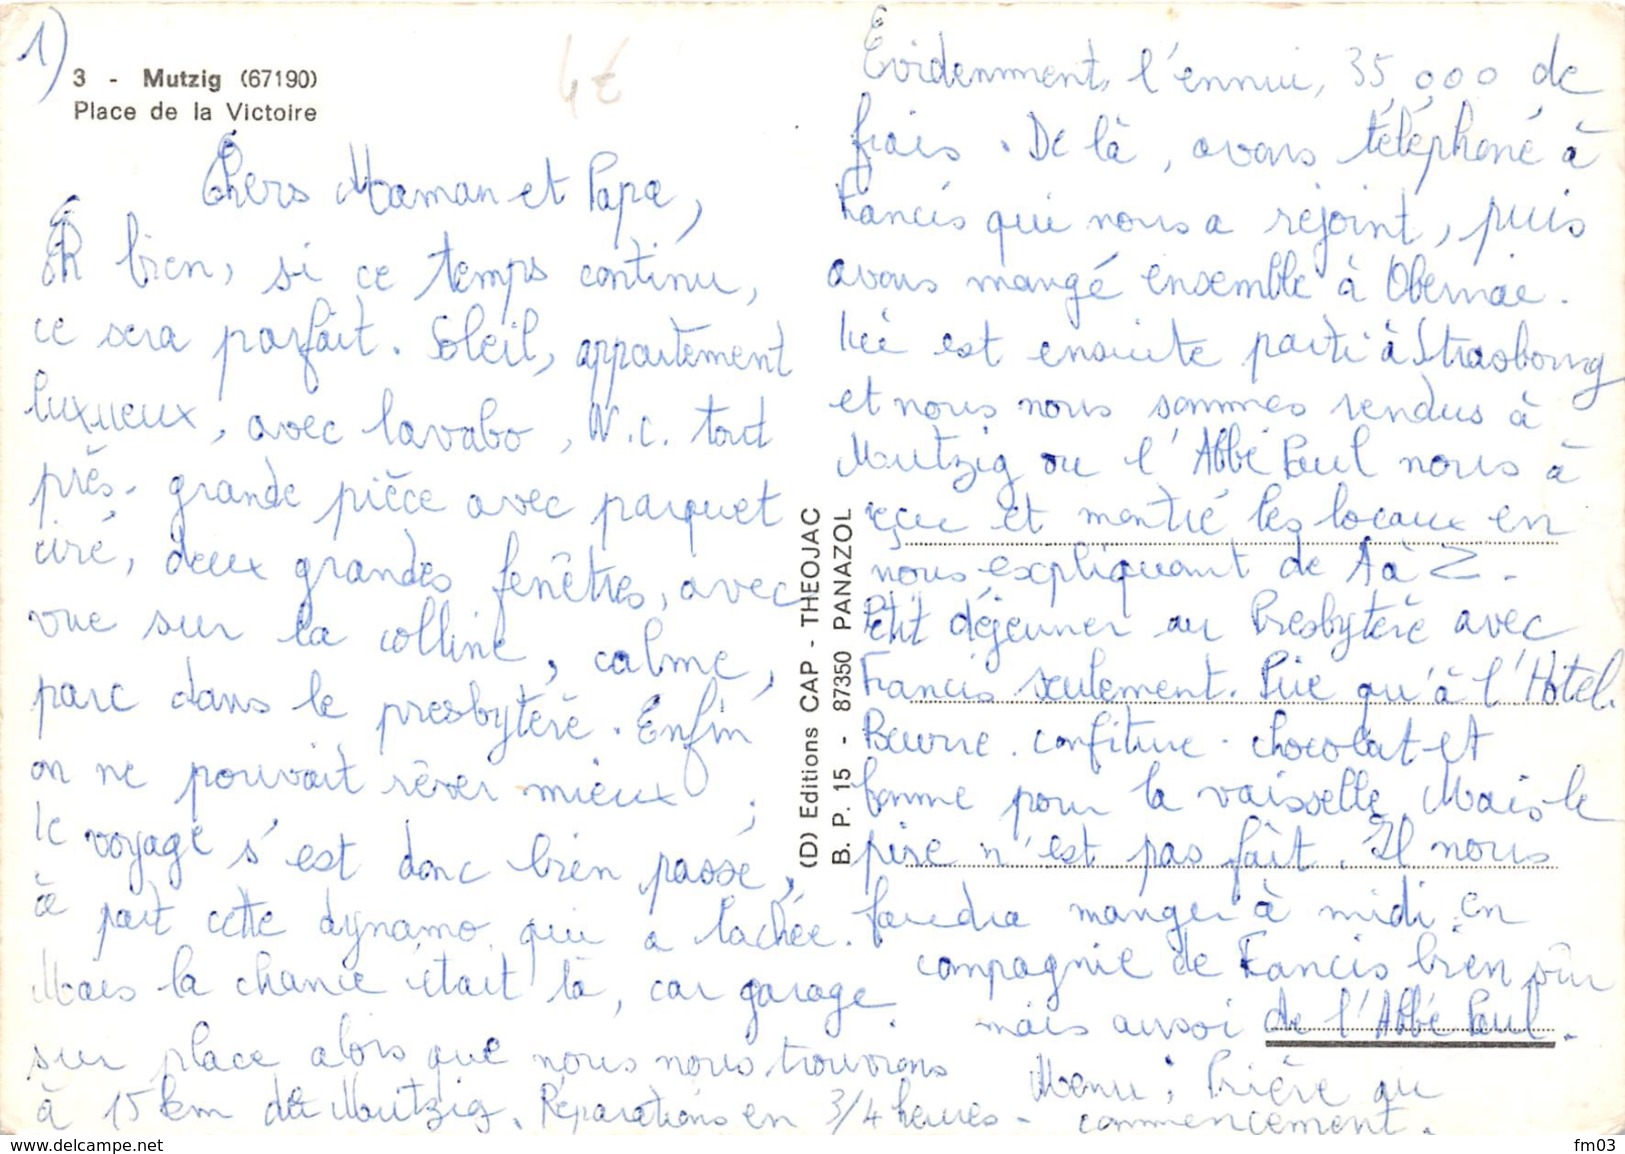 1)
3 - Mutzig (67190)
Place de la Victoire
4€
Chers Maman et Papa,
Eh bien, si ce temps continu,
ce sera parfait. Soleil, appartement
luxueux, avec lavabo, W.c. tout
près. grande pièce avec parquet
ciré, deux grandes fenêtres, avec
vue sur la colline, calme,
parc dans le presbytère. Enfin
on ne pouvait rêver mieux.
le voyage s'est donc bien passé,
à part cette dynamo qui a lachée.
Mais la chance était là, car garage
sur place alors que nous nous trouvions
à 15 km de Mutzig. Réparations en 3/4 heures -
(D) Editions CAP - THEOJAC
B. P. 15 - 87350 PANAZOL
Evidemment, l'ennui, 35 000 de
frais. De là, avons téléphoné à
Francis qui nous a rejoint, puis
avons mangé ensemble à Obernai.
est ensuite parti à Strasbourg
et nous nous sommes rendus à
Mutzig ou l'Abbé Paul nous à
reçu et montré les locaux en
nous expliquant de A à Z -
Petit déjeuner au Presbytère avec
Francis seulement. Pire qu'à l'Hotel.
Beurre. confiture - chocolat et
femme pour la vaisselle. Mais le
pire n'est pas fait. Il nous
faudra manger à midi en
compagnie de Francis bien sûr
mais aussi de l'Abbé Paul.
Menu : Prière au
commencement.
www.delcampe.net
fm03